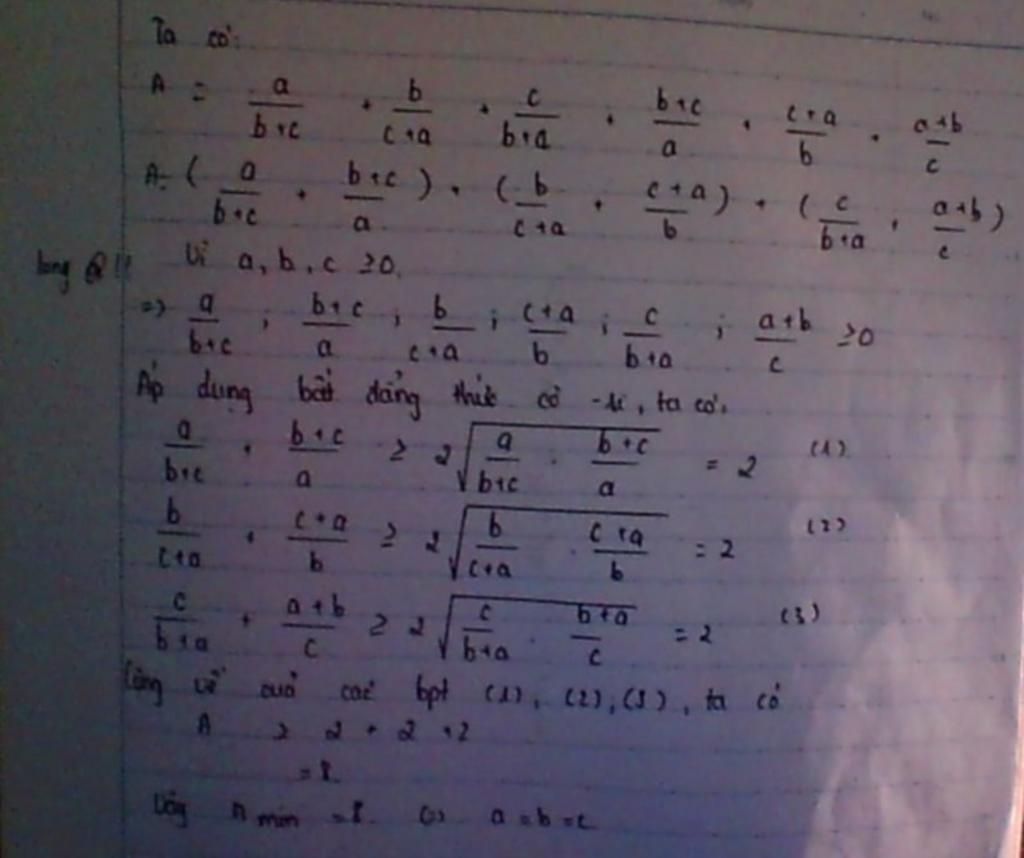 Ta có:
A = a/(b+c) + b/(c+a) + c/(b+a) + (b+c)/a + (c+a)/b + (a+b)/c
A = (a/(b+c) + (b+c)/a) + (b/(c+a) + (c+a)/b) + (c/(b+a) + (a+b)/c)
Vì a, b, c ≥0.
=> a/(b+c) ; (b+c)/a ; b/(c+a) ; (c+a)/b ; c/(b+a) ; (a+b)/c ≥0
Áp dụng bất đẳng thức cô -si, ta có:
a/(b+c) + (b+c)/a ≥ 2√(a/(b+c) . (b+c)/a) = 2 (1)
b/(c+a) + (c+a)/b ≥ 2√(b/(c+a) . (c+a)/b) = 2 (2)
c/(b+a) + (a+b)/c ≥ 2√(c/(b+a) . (b+a)/c) = 2 (3)
Cộng vế các bpt (1), (2), (3), ta có
A ≥ 2 + 2 + 2
= 8.
Vậy A min = 8 <=> a = b = c